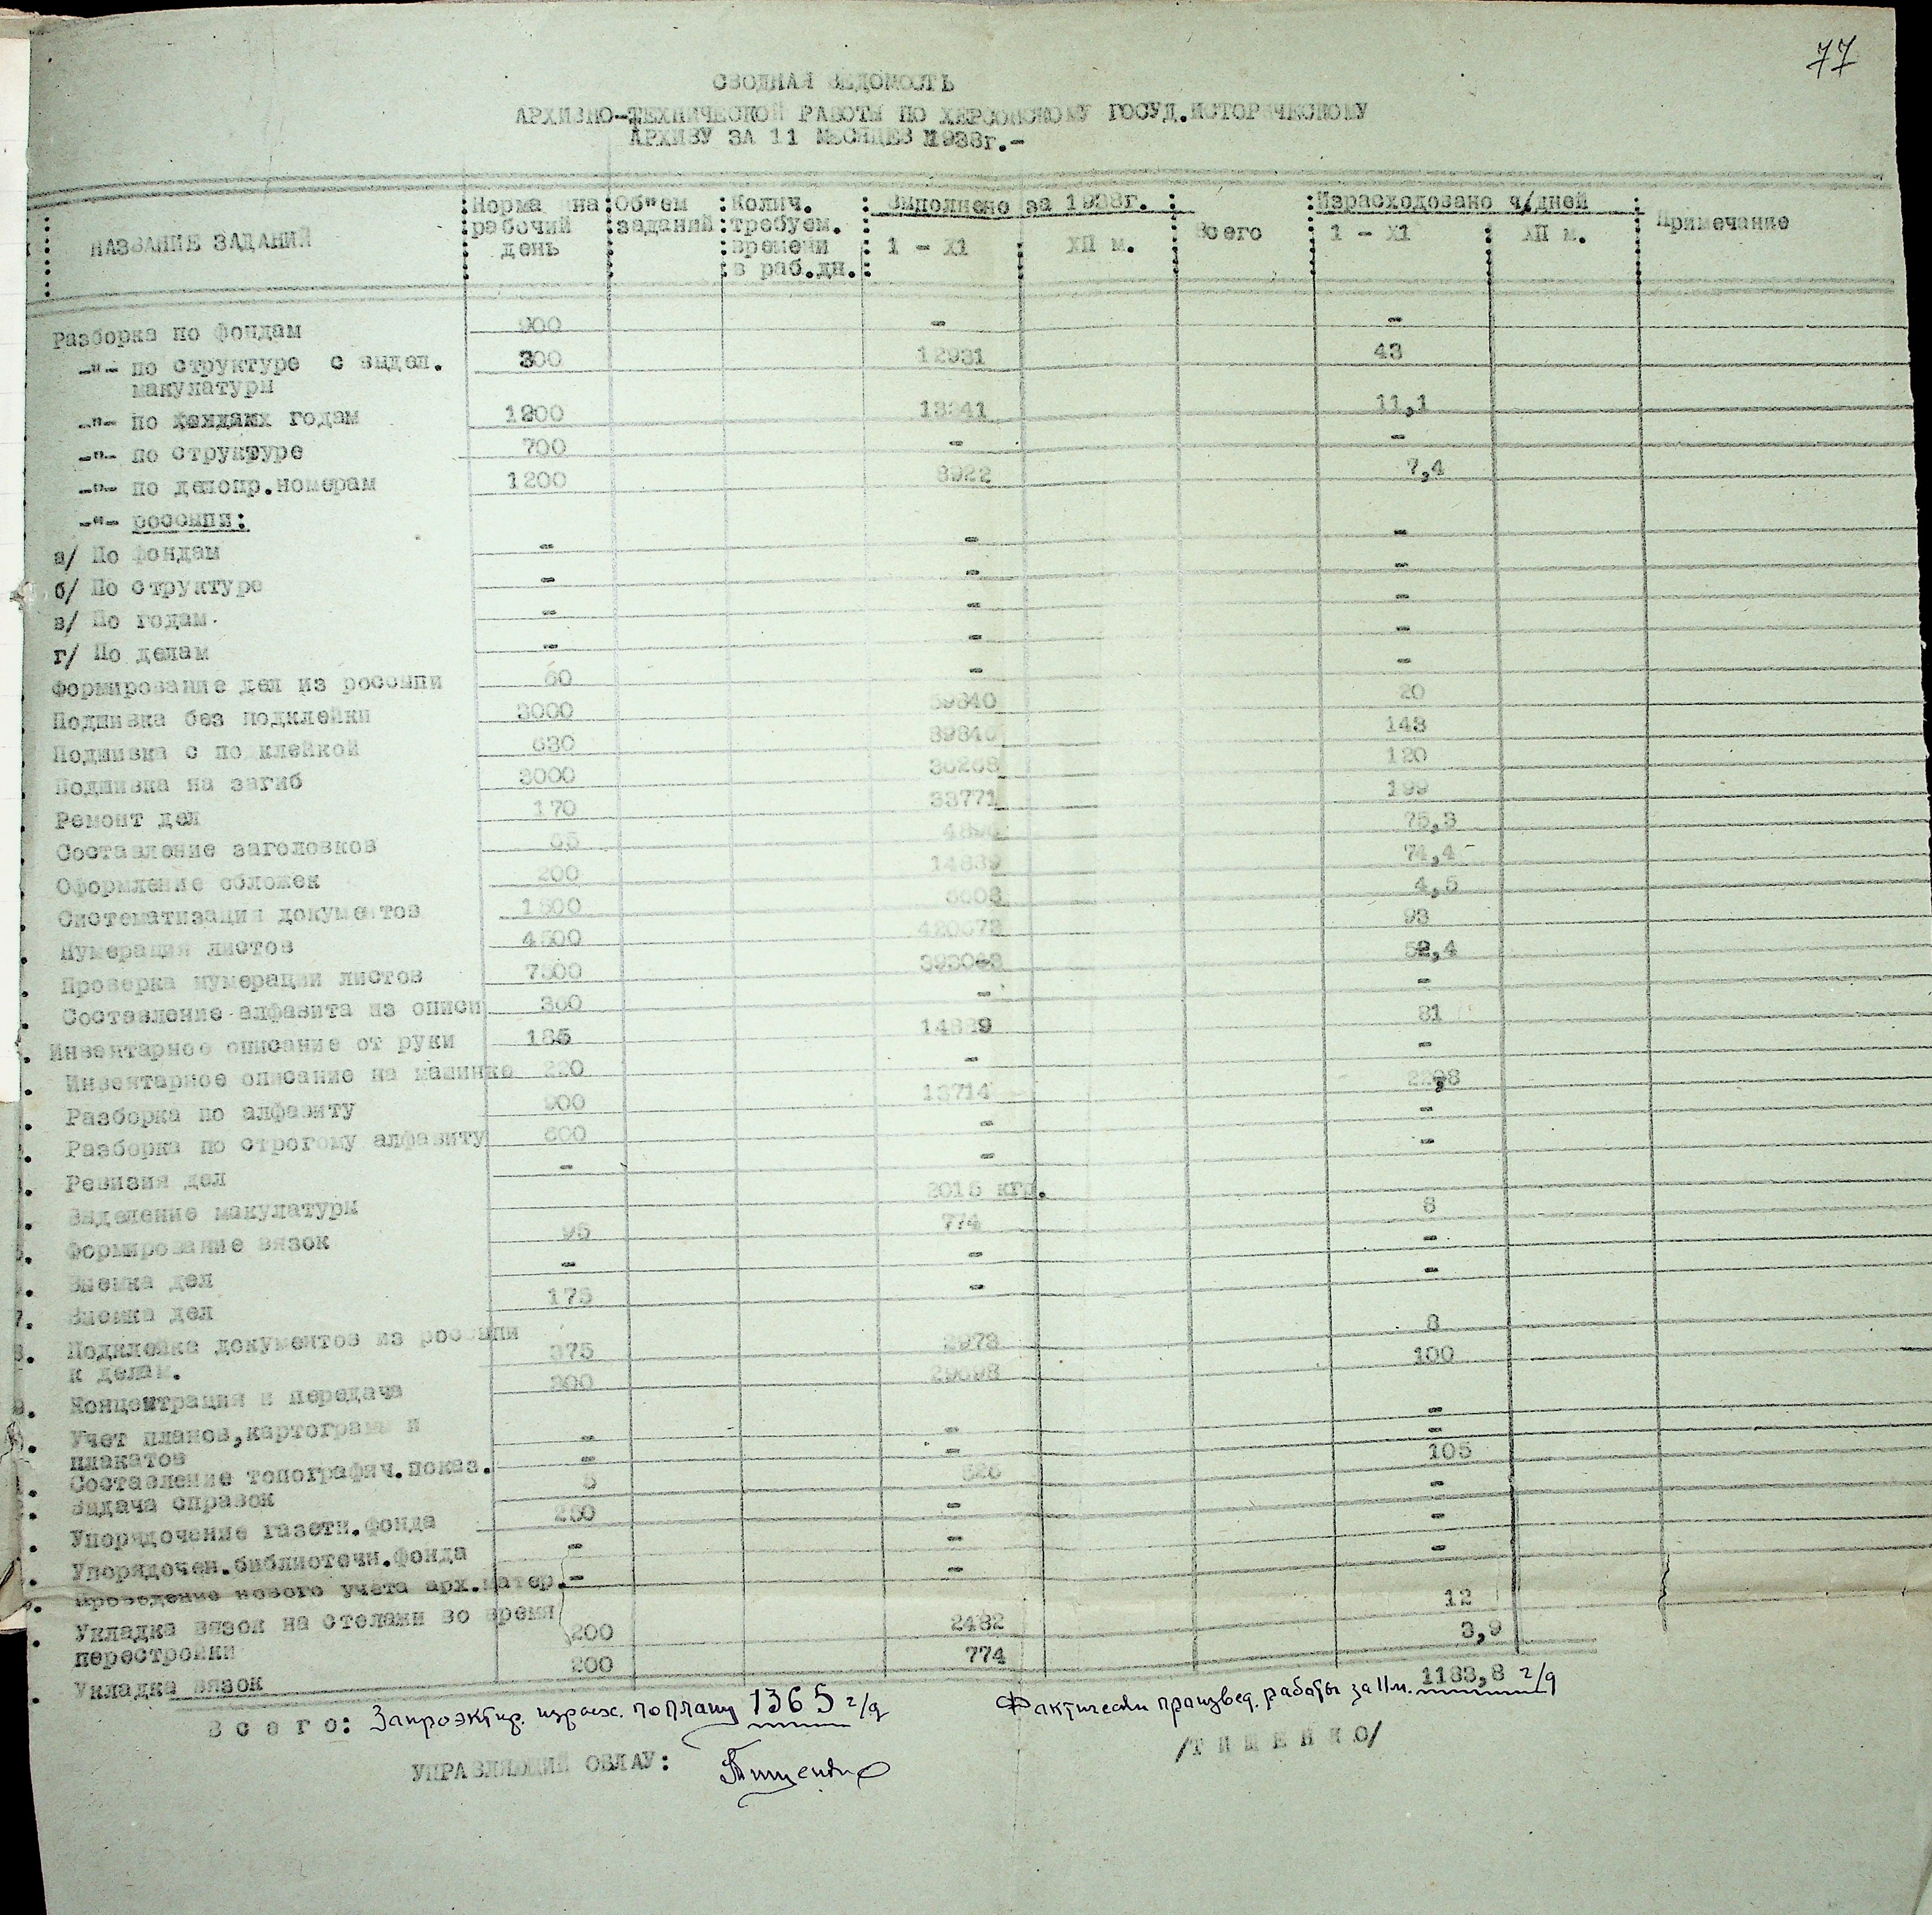 77
СВОДНАЯ ВЕДОМОСТЬ
АРХИВНО-ТЕХНИЧЕСКОЙ РАБОТЫ ПО ХЕРСОНСКОМУ ГОСУД.ИСТОРИЧЕСКОМУ
АРХИВУ ЗА 11 МЕСЯЦЕВ 1938г.-
НАЗВАНИЕ ЗАДАНИЙ
Норма на рабочий день
Об"ем заданий
Колич. требуем. времени в раб.дн.
Выполнено за 1938г.
1 - Х1
ХII м.
Всего
Израсходовано ч/дней
1 - Х1
ХII м.
Примечание
Разборка по фондам 900 - -
-"- по структуре с выдел. 300 12931 43
макулатуры
-"- по годам 1200 13341 11,1
-"- по структуре 700 - -
-"- по делопр.номерам 1200 8922 7,4
-"- россыпи:
а/ По фондам - - -
б/ По структуре - - -
в/ По годам. - - -
г/ По делам - - -
Формирование дел из россыпи 60 - -
Подшивка без подклейки 3000 59840 20
Подшивка с по клейкой 630 143
Подшивка на загиб 3000 120
Ремонт дел 170 33771 199
Составление заголовков 65 75,3
Оформление обложек 200 14889 74,4
Систематизация документов 4,5
Нумерация листов 4500 93
Проверка нумерации листов 7500 52,4
Составление алфавита из описи 300 - -
Инвентарное описание от руки 185 14889 81
Инвентарное описание на машинке 220 - -
Разборка по алфавиту 900 13714
Разборка по строгому алфавиту 600 - -
Ревизия дел - - -
Выделение макулатуры 2015 кгр.
Формирование вязок 95 774 8
Выемка дел - - -
Выемка дел 175 - -
Подклейка документов из россыпи
к делам. 375 2973 8
Концентрация и передача 300 100
Учет планов,картограмм и
плакатов - - -
Составление топографич.показ. - - -
Выдача справок 5 526 105
Упорядочение газетн.фонда 250 - -
Упорядочен.библиотечн.фонда - - -
Проведение нового учета арх.матер. - - -
Укладка вязок на стелажи во время
перестройки 200 2482 12
Укладка вязок 200 774 3,9
В с е г о: Запроэктир. израсх. по плану 1365 ч/д Фактически произвед. работы за 11 м. 1183,8 ч/д
УПРАВЛЯЮЩИЙ ОБЛАУ: Тищенко /Т И Щ Е Н К О/